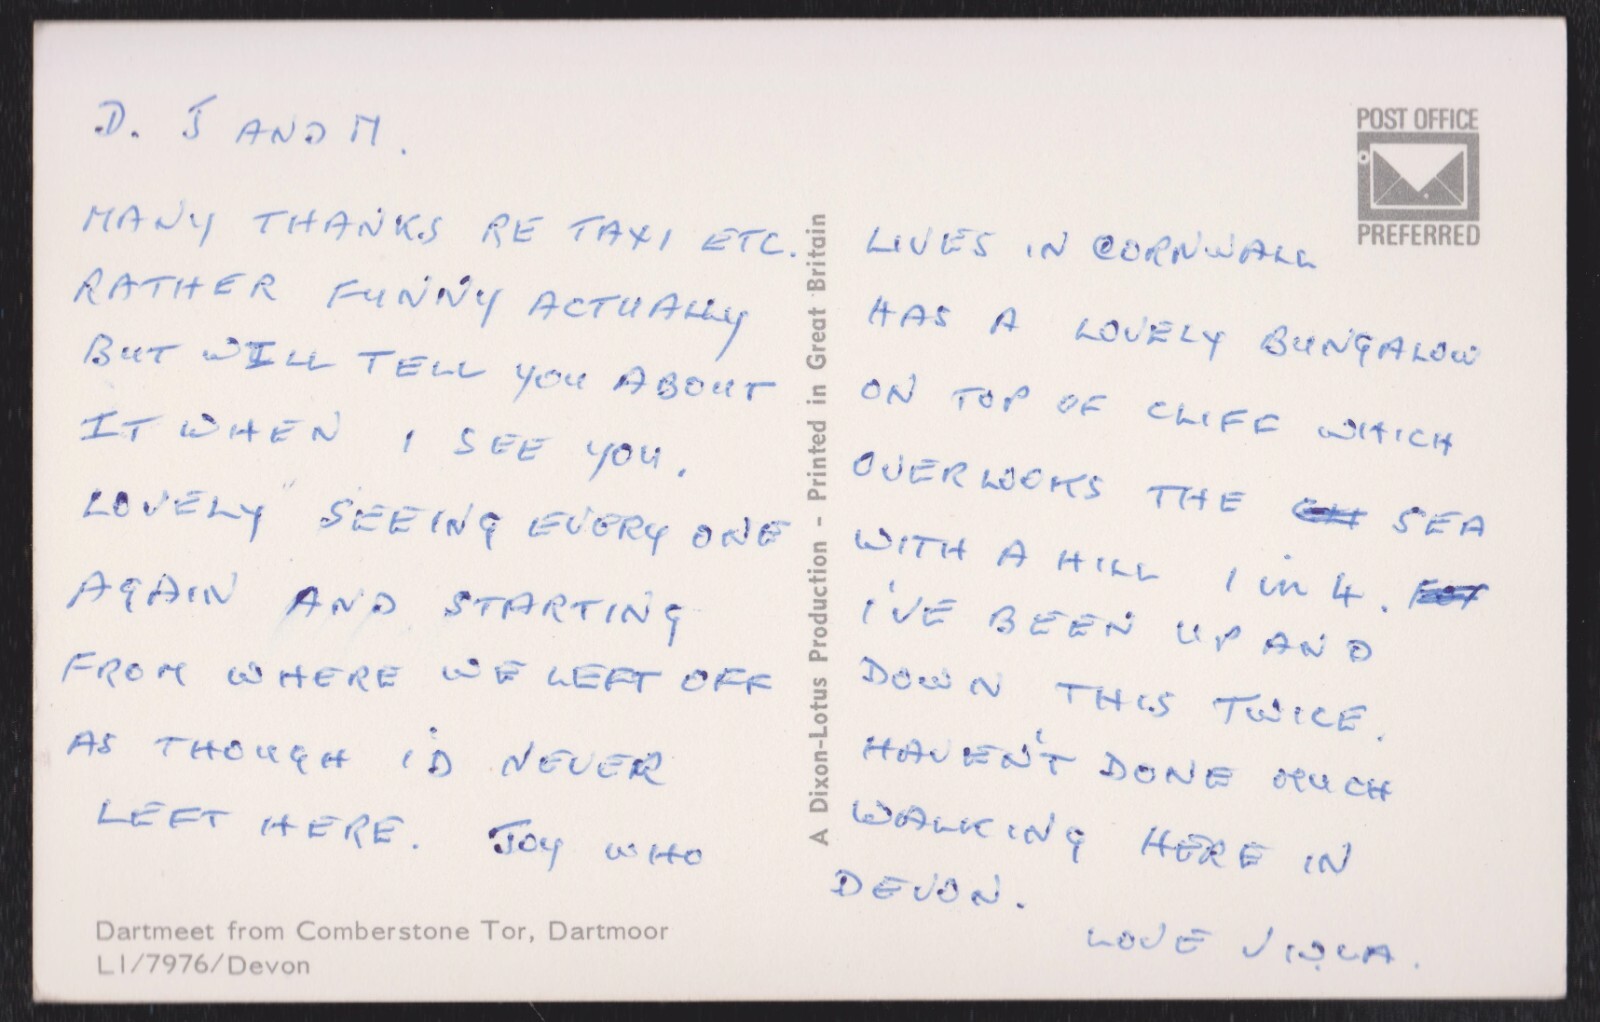 D. J AND M.
MANY THANKS RE TAXI ETC.
RATHER FUNNY ACTUALLY
BUT WILL TELL YOU ABOUT
IT WHEN I SEE YOU.
LOVELY SEEING EVERY ONE
AGAIN AND STARTING
FROM WHERE WE LEFT OFF
AS THOUGH I'D NEVER
LEFT HERE. JOY WHO
Dartmeet from Comberstone Tor, Dartmoor
LI/7976/Devon
A Dixon-Lotus Production - Printed in Great Britain
POST OFFICE
PREFERRED
LIVES IN CORNWALL
HAS A LOVELY BUNGALOW
ON TOP OF CLIFF WHICH
OVERLOOKS THE SEA
WITH A HILL 1 in 4.
I'VE BEEN UP AND
DOWN THIS TWICE.
HAVEN'T DONE MUCH
WALKING HERE IN
DEVON.
LOVE VIOLA.